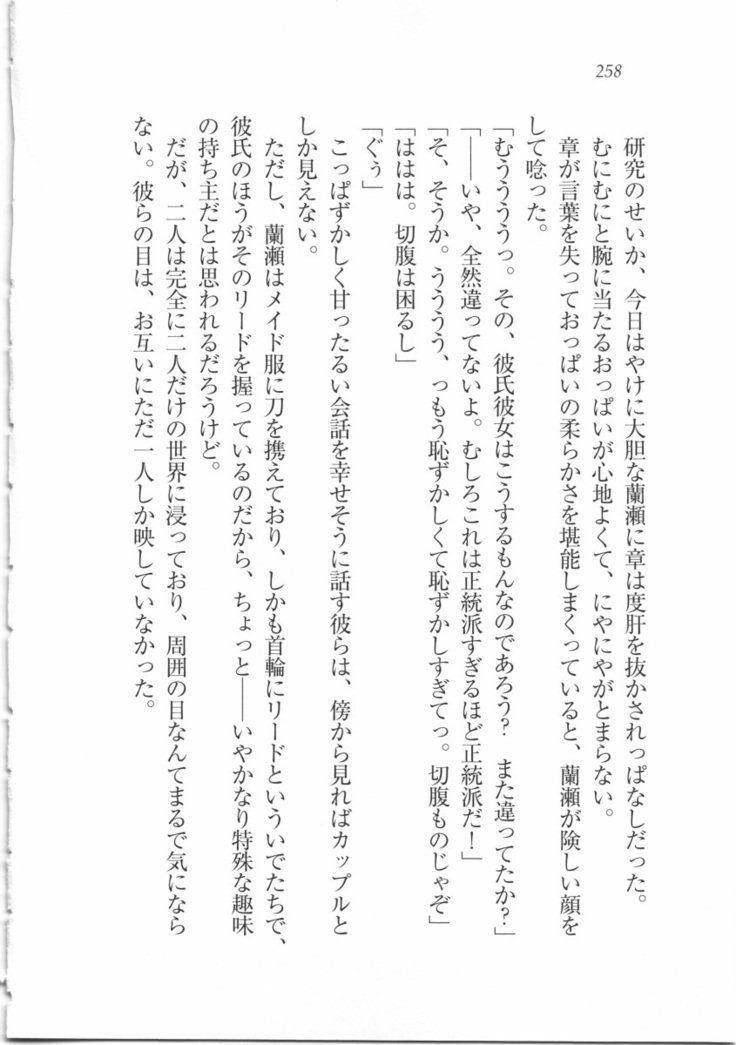 258
研究のせいか、今日はやけに大胆な蘭瀬に章は度肝を抜かされっぱなしだった。
むにむにと腕に当たるおっぱいが心地よくて、にやにやがとまらない。
章が言葉を失っておっぱいの柔らかさを堪能しまくっていると、蘭瀬が険しい顔を
して唸った。
「むううううっ。その、彼氏彼女はこうするもんなのであろう？　また違ってたか？」
「――いや、全然違ってないよ。むしろこれは正統派すぎるほど正統派だ！」
「そ、そうか。うううう、っもう恥ずかしくて恥ずかしすぎてっ。切腹ものじゃぞ」
「ははは。切腹は困るし」
「ぐぅ」
こっぱずかしく甘ったるい会話を幸せそうに話す彼らは、傍から見ればカップルと
しか見えない。
ただし、蘭瀬はメイド服に刀を携えており、しかも首輪にリードといういでたちで、
彼氏のほうがそのリードを握っているのだから、ちょっと――いやかなり特殊な趣味
の持ち主だとは思われるだろうけど。
だが、二人は完全に二人だけの世界に浸っており、周囲の目なんてまるで気になら
ない。彼らの目は、お互いにただ一人しか映していなかった。